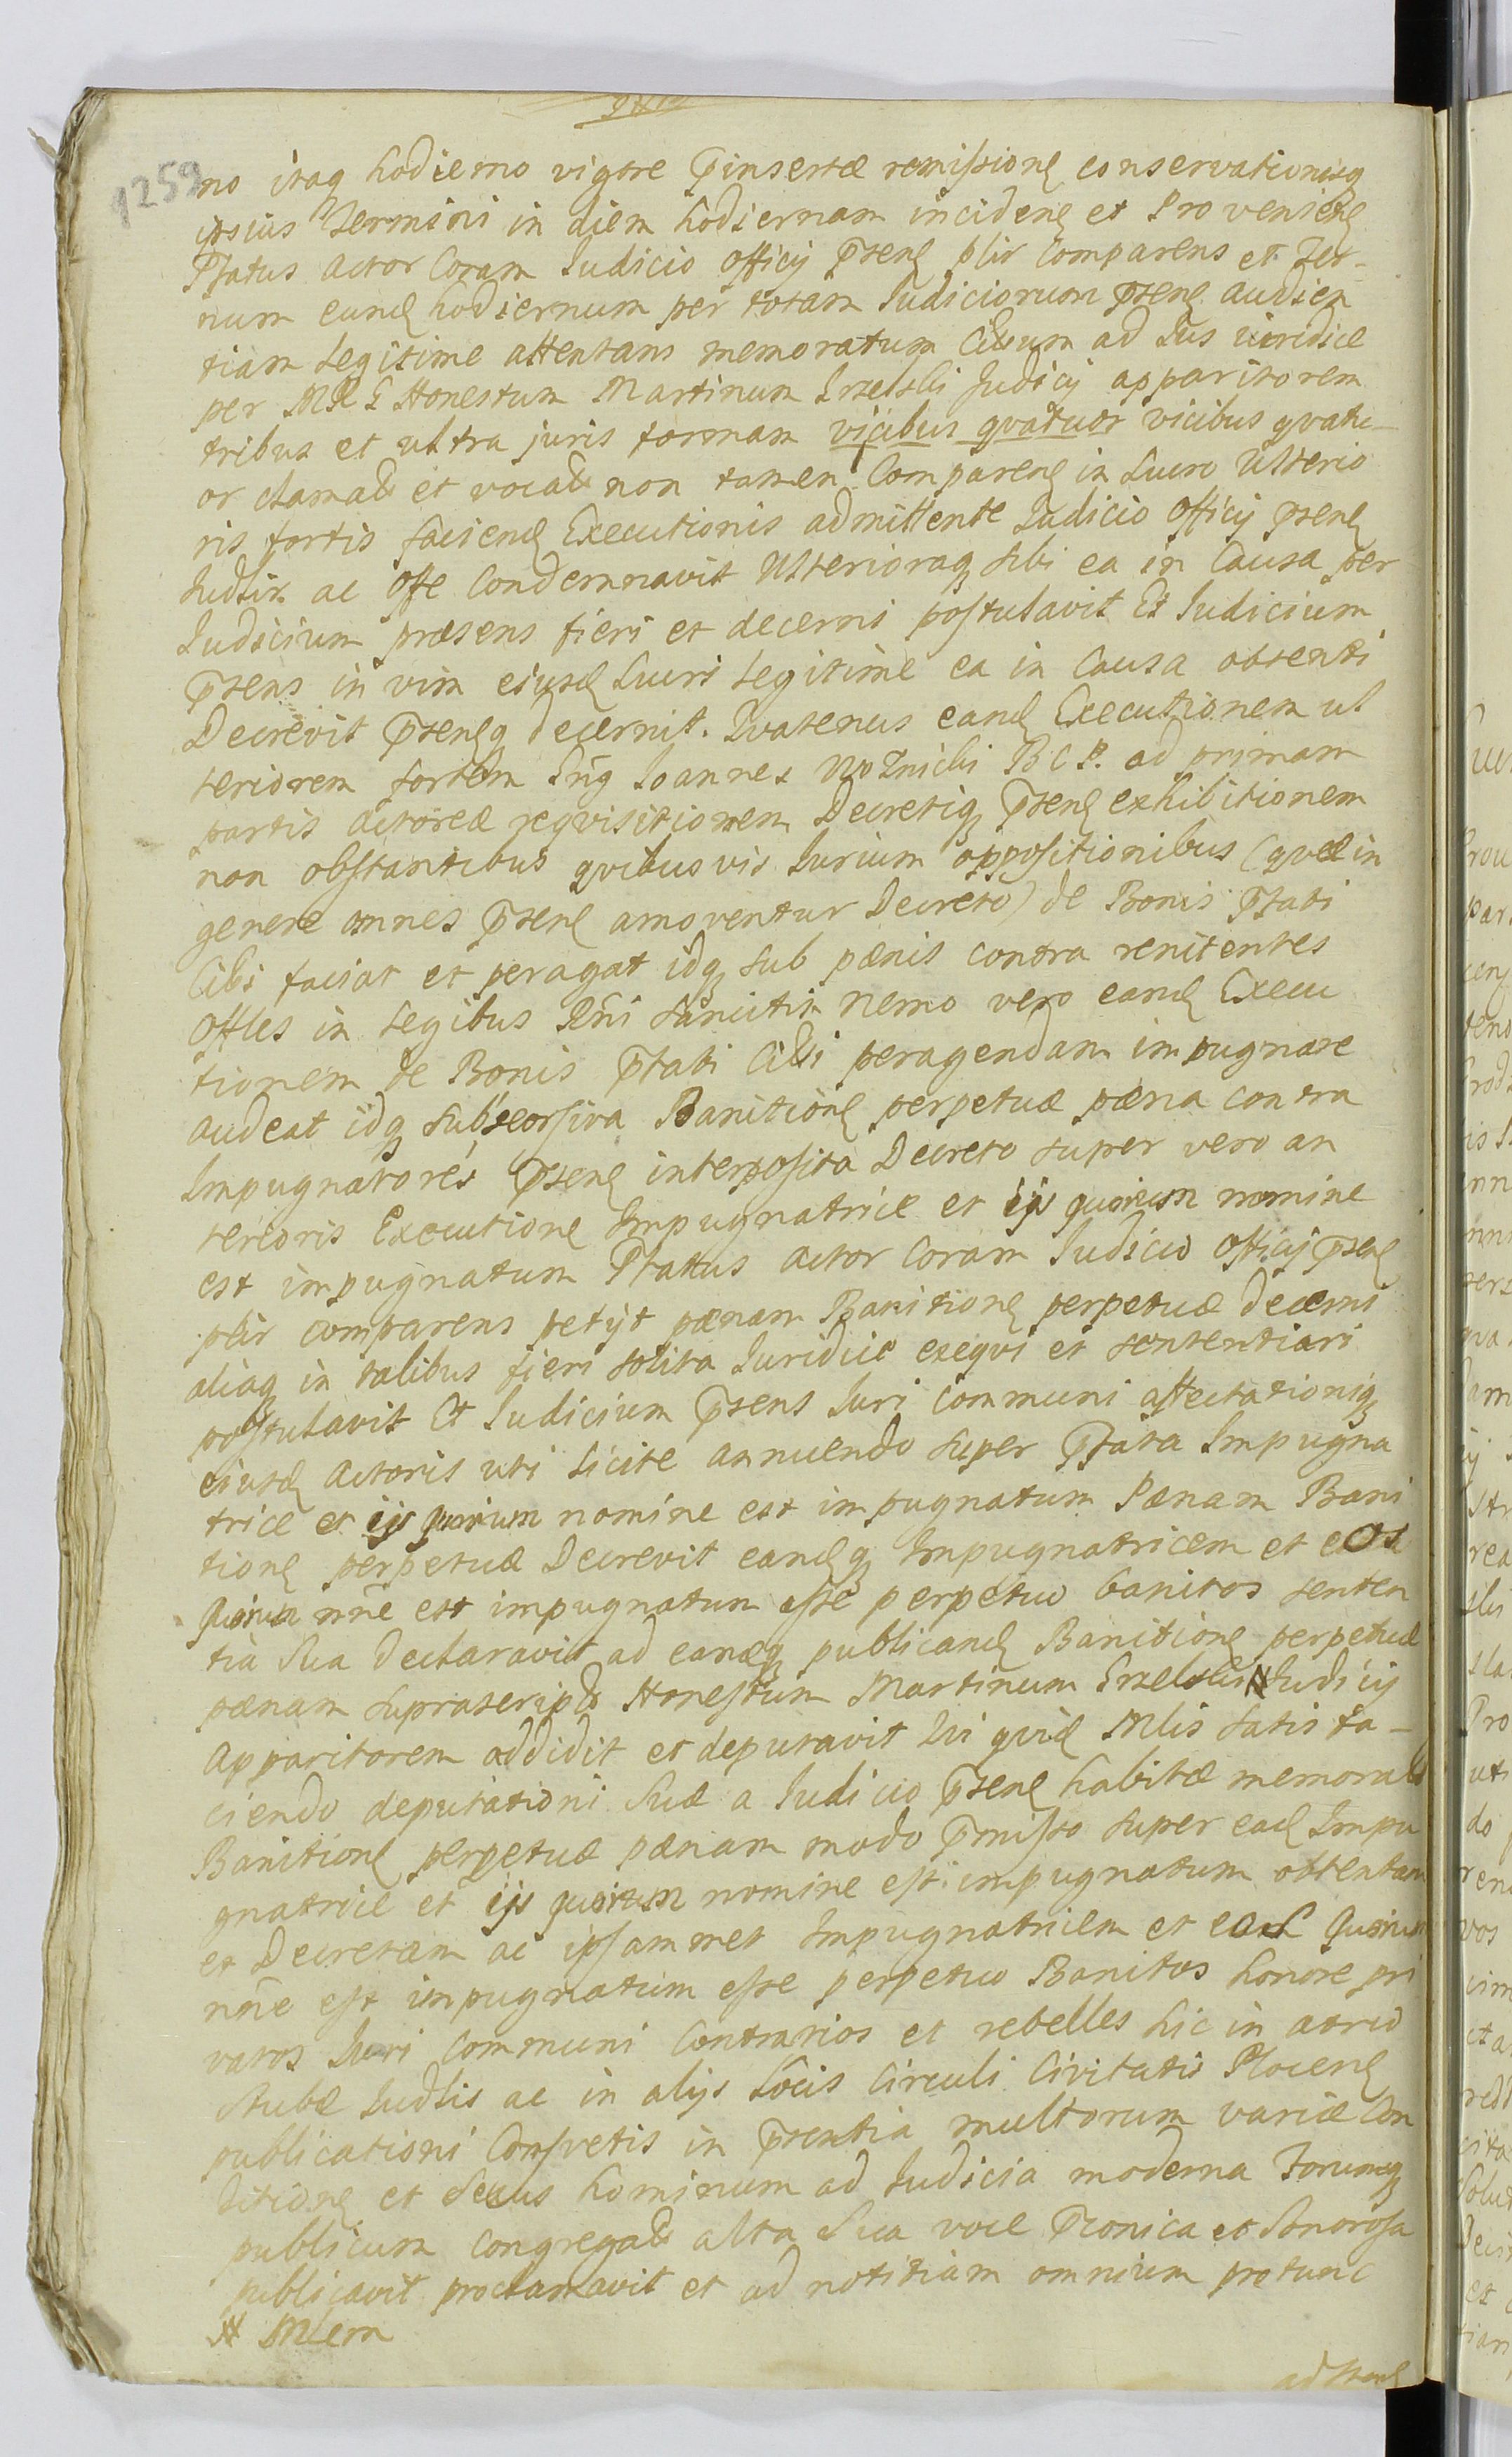 1259
no itaq hodierno vigore p̄insertæ remissionę conservationisq
ipsius Termini in diem hodiernam incidenę et Provenienę
Pſatus actor Coram Iudicio Officij p̄senę plir Comparens et Ter-
num eundę hodiernum per totam Iudiciorum p̄senę audien
tiam legitime attentans memoratum Citum ad Ius iuridice
per Honestum Martinum Judicij apparitorem
tribus et ultra juris formam vicibus qvatuor vicibus qvatu-
or clamatū et vocatū non tamen Comparenę in Lucro Ulterio
ris fortis faciendę Executionis admittente Iudicio Officij p̄senę
Iudlir ac Offe Condemnavit Ulterioraq sibi ea in Causa per
Iudicium præsens fieri et decerni postulavit Et Iudicium
p̄sens in vim eiusdę Lucri legitime ea in Causa obtenti
Decrevit p̄senęq decernit. Qvatenus eandę Executionem ul
teriorem fortem Ioannes Woznicki B C P. ad primam
partis actoreæ reqvisitionem Decretiq p̄senę exhibitionem
non obstantibus qvibusvis Iurium oppositionibus (qvæ in
genere omnes p̄senę amoventur Decreto) de Bonis p̄fati
Citi faciat et peragat idq sub pænis contra renitentes
Offles in legibus Rn̄i sancitis nemo vero eandę Execu
tionem de Bonis p̄fati Citi peragendam impugnare
audeat idq sub seorsiva Banitionę perpetuæ pæna contra
Impugnatores p̄senę interposita Decreto super vero an
terioris Executionę Impugnatrice et ijs quorum nomine
est impugnatum Pſattus actor Coram Iudicio Officij p̄senę
plir comparens petijt pænam Banitionę perpetuæ decerni
aliaq in talibus fieri solita Iuridice exeqvi et sententiari
postulavit Et Iudicium p̄sens Iuri Communi affectationiq
eiusdę actoris uti licite annuendo super p̄fata Impugna
trice et ijs quorum nomine est impugnatum Pænam Bani
tionę perpetuæ Decrevit eandęq Impugnatricem et eos
quorum nn̄e est impugnatum esse perpetuo banitos senten
tia Sua declaravit ad eamq publicandę Banitionę perpetuæ
pænam suprascriptū Honestum Martinum # Iudicij
Apparitorem addidit et deputavit Qui qvidę Mlis satisfa-
ciendo deputationi Suæ a Iudicio p̄senę habitæ memoratū
Banitionę perpetuæ pænam modo p̄misso super eadę Impu
gnatrice et ijs quorum nomine est impugnatum obtentam
et Decretam ac ipsammet Impugnatricem et eos quorum
nn̄e est impugnatum esse perpetuo Banitos honore pri
vatos Iuri Communi Contrarios et rebelles hic in atrio
Stubæ Iudlis ac in alijs Locis Circuli Civitatis Plocenę
publicationi Consvetis in p̄sentia multorum variæ Con
ditionę et Sexus hominum ad Iudicia moderna Forumq
publicum Congregatū alta Sua voce p̄conica et Sonorosa
publicavit proclamavit et ad notitiam omnium protunc
# Mlem